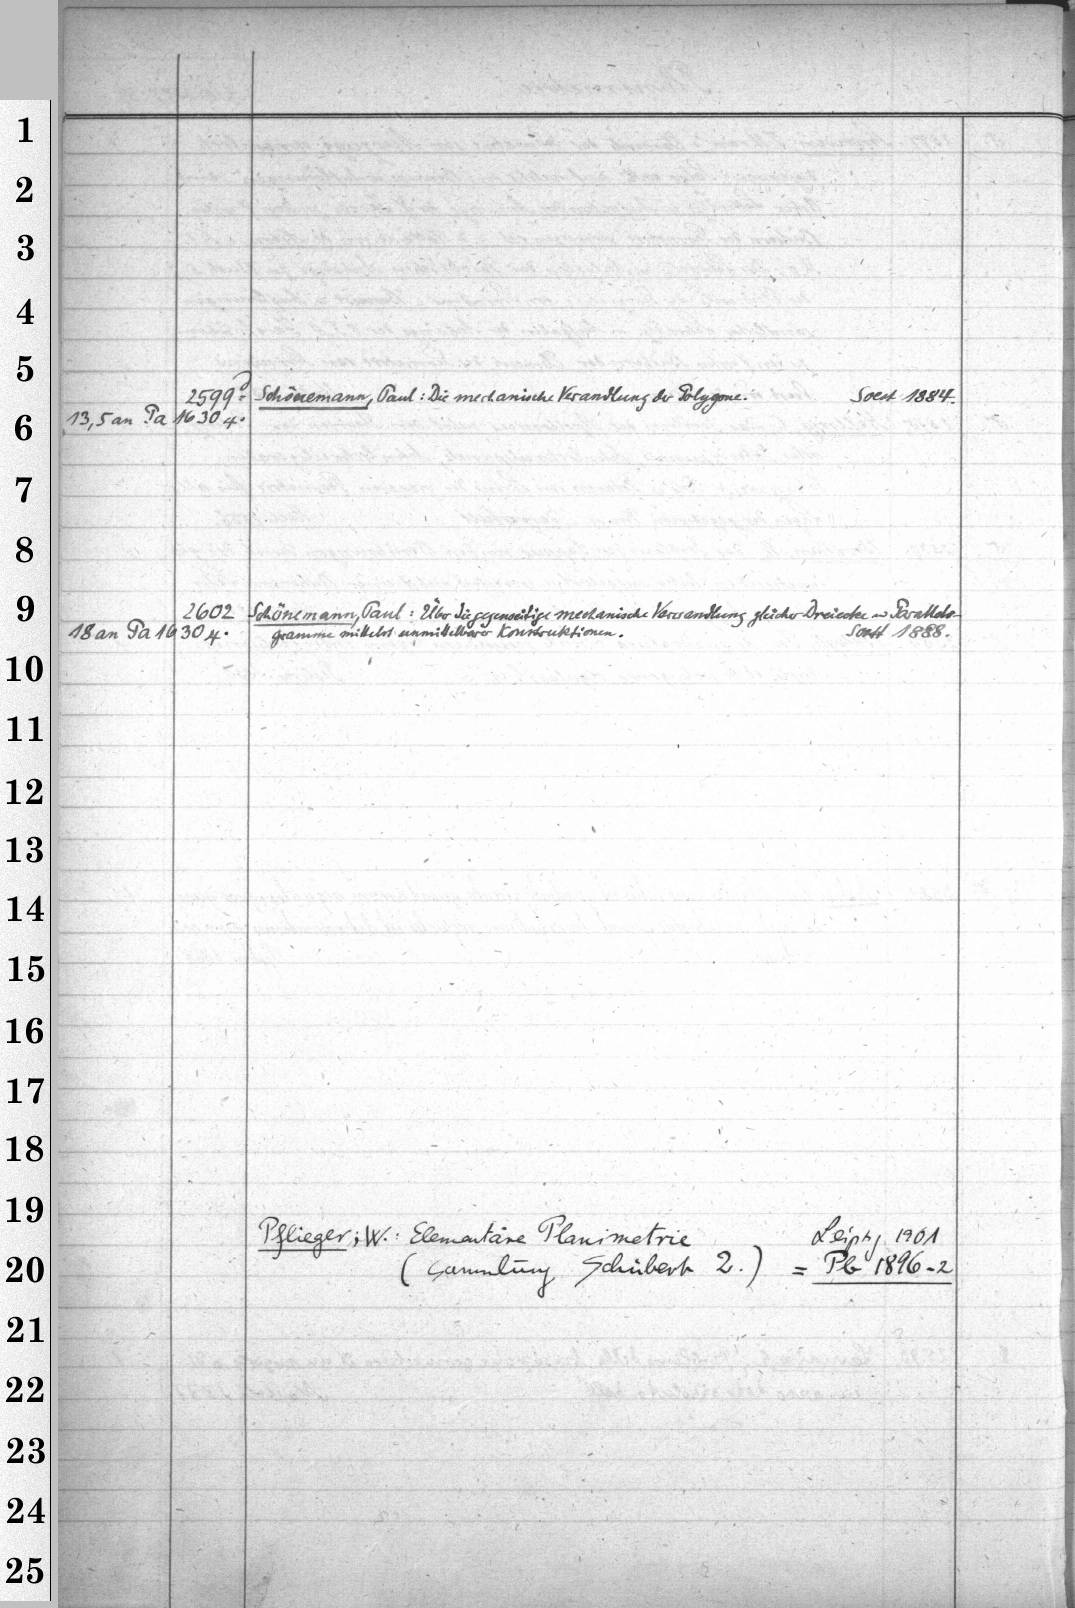 1
2
3
4
5
2599? Schönemann, Paul: Die mechanische Verandlung der Polygone. Soest 1884.
13,5 an Pa 1630 4.
6
7
8
9
2602 Schönemann, Paul: Über die gegenseitige mechanische Verwandlung gleicher Dreiecke u Parallelo-
18 an Pa 1630 4. gramme mittelst unmittelbarer Konstruktionen. Soest 1888.
10
11
12
13
14
15
16
17
18
19
Pflieger, W.: Elementare Planimetrie Leipzg 1901
20 (Sammlung Schubert 2.) = Pb 1896-2
21
22
23
24
25